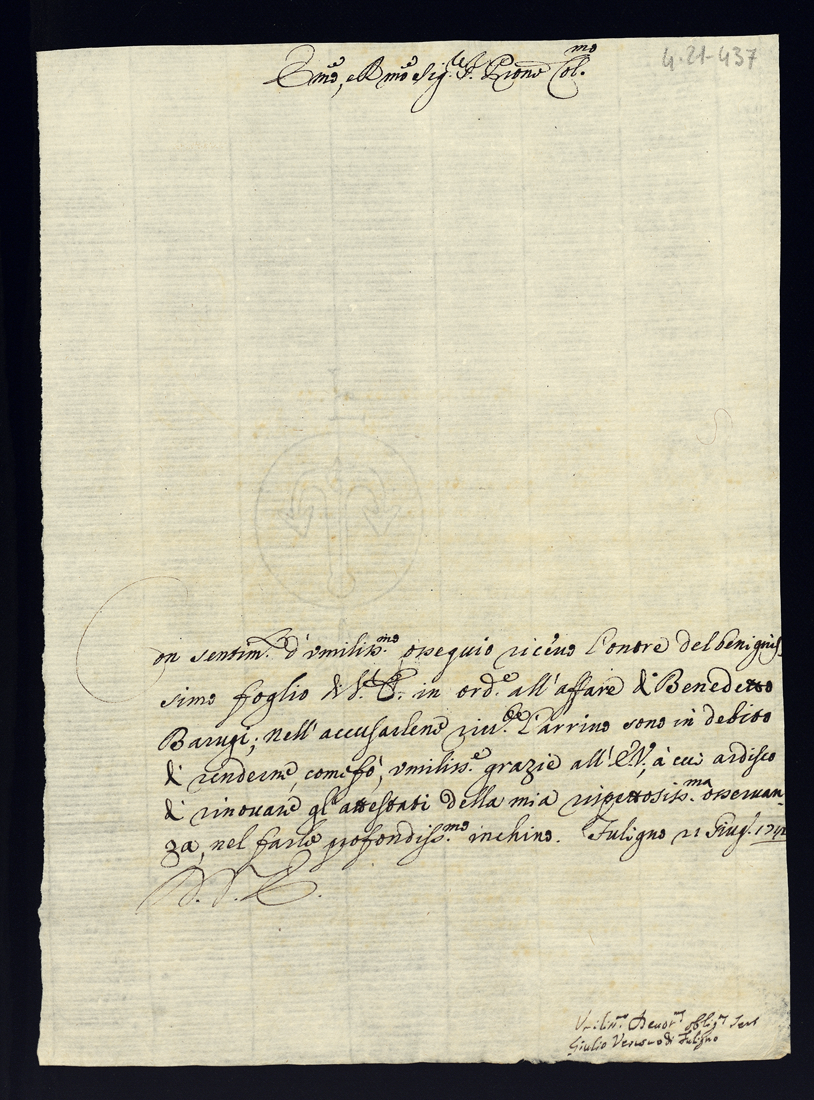 Emo, e Rmo Sig.re P. Prone Col.mo
4.21-437
Con sentim.ti d'umiliss.mo ossequio ricevo l'onore del benignis
simo foglio di V. E. in ord.e all'affare di Benedetto
Barugi; nell'accusarlene l'arrivo sono in debito
di renderne, come fò, umiliss.e grazie all'E.V., à cui ardisco
di rinovare gl'attestati della mia rispettosiss.ma osservan-
za, nel farle profondiss.mo inchino. Fuligno 21 Giug.
D. V. E.
Umiliss.mo Devot.mo obblig.mo Serv
Giulio Vescovo di Fuligno